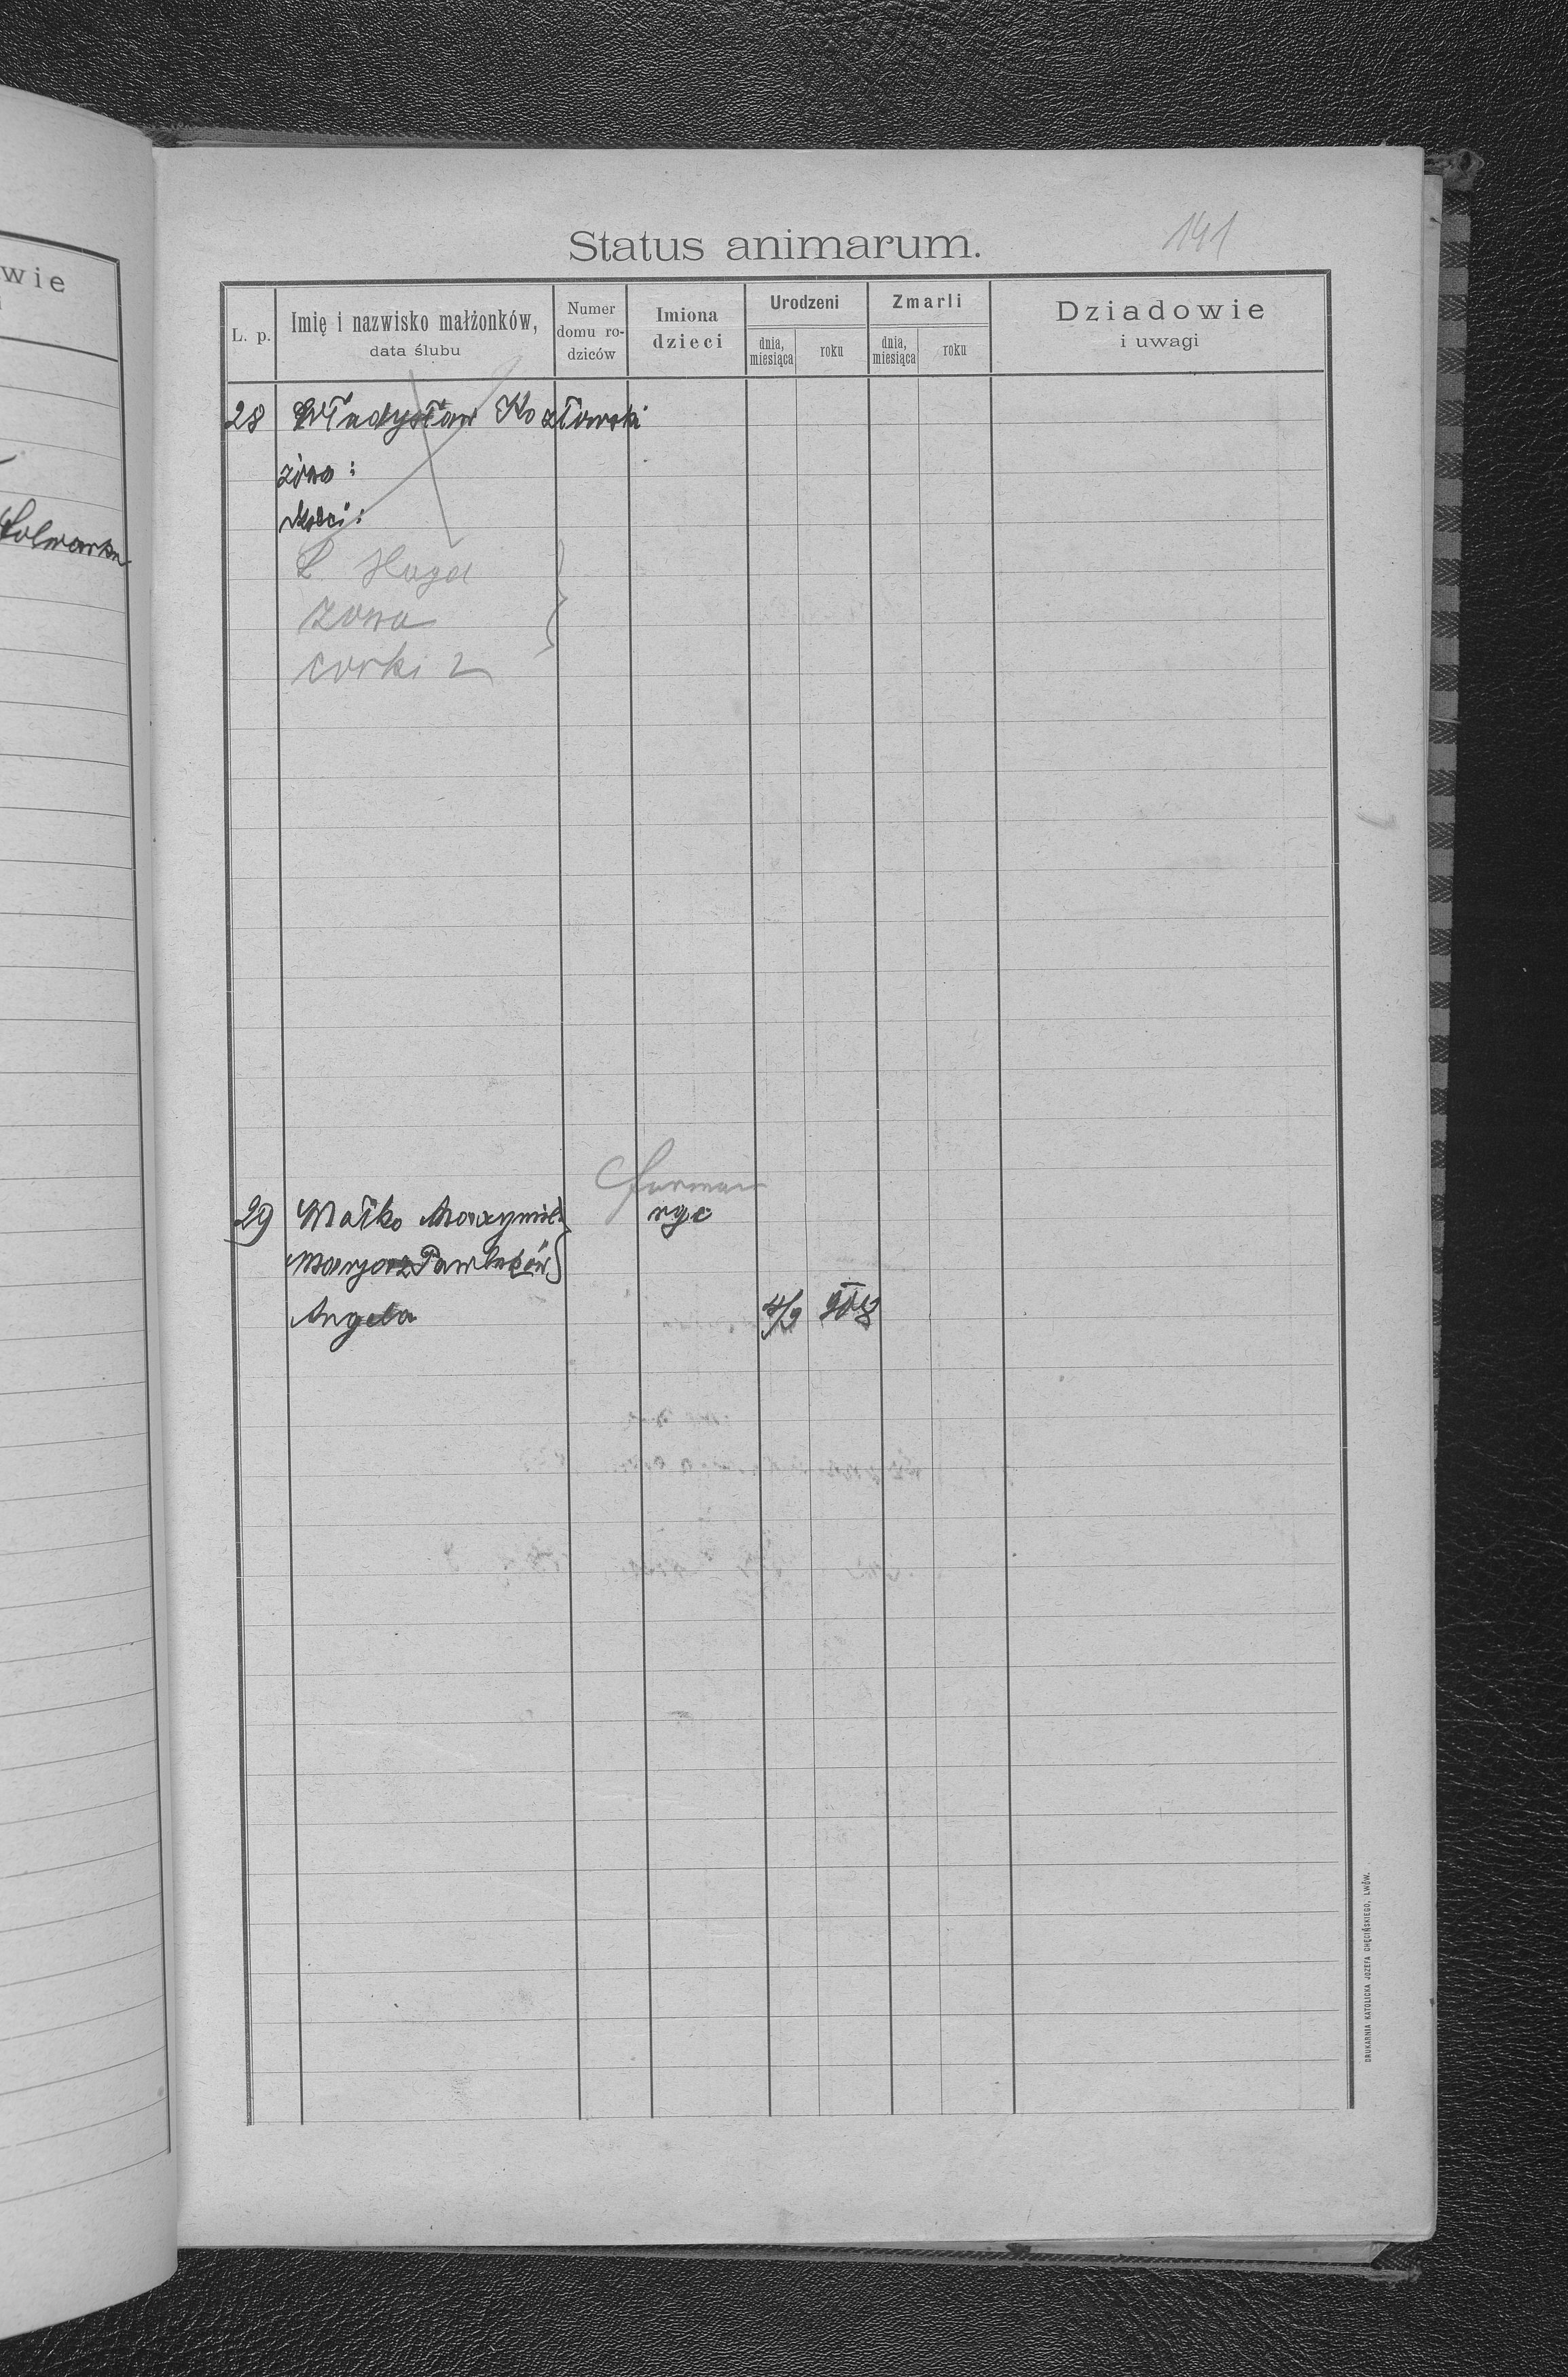 wie
folwarku
141
Status animarum.
L. p.
Imię i nazwisko małżonków,
data ślubu
Numer
domu ro-
dziców
Imiona
dzieci
Urodzeni
dnia,
miesiąca
roku
Zmarli
dnia,
miesiąca
roku
Dziadowie
i uwagi
28 Władysław Kozłowski
żona:
dzieci:
żona
corki 2
29 Matko Maxymil.
rgc
Marya z Pawluków
Angela 4/9 908
DRUKARNIA KATOLICKA JÓZEFA CHĘCIŃSKIEGO, LWÓW.